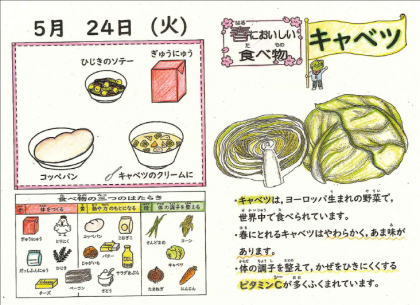 5月 24日 (火)
ひじきのソテー
ぎゅうにゅう
コッペパン
キャベツのクリームに
食べ物の三つのはたらき
体をつくる
熱や力のもとになる
体の調子を整える
ぎゅうにゅう
とりにく
コッペパン
こむぎこ
だっしふんにゅう
ひじき
じゃがいも
バター
さとう
チーズ
ベーコン
サラダあぶら
さんどまめ
コーン
キャベツ
たまねぎ
にんじん
春においしい
食べ物
キャベツ
・キャベツは、ヨーロッパ生まれの野菜で、
世界中で食べられています。
・春にとれるキャベツはやわらかく、あま味が
あります。
・体の調子を整えて、かぜをひきにくくする
ビタミンCが多くふくまれています。